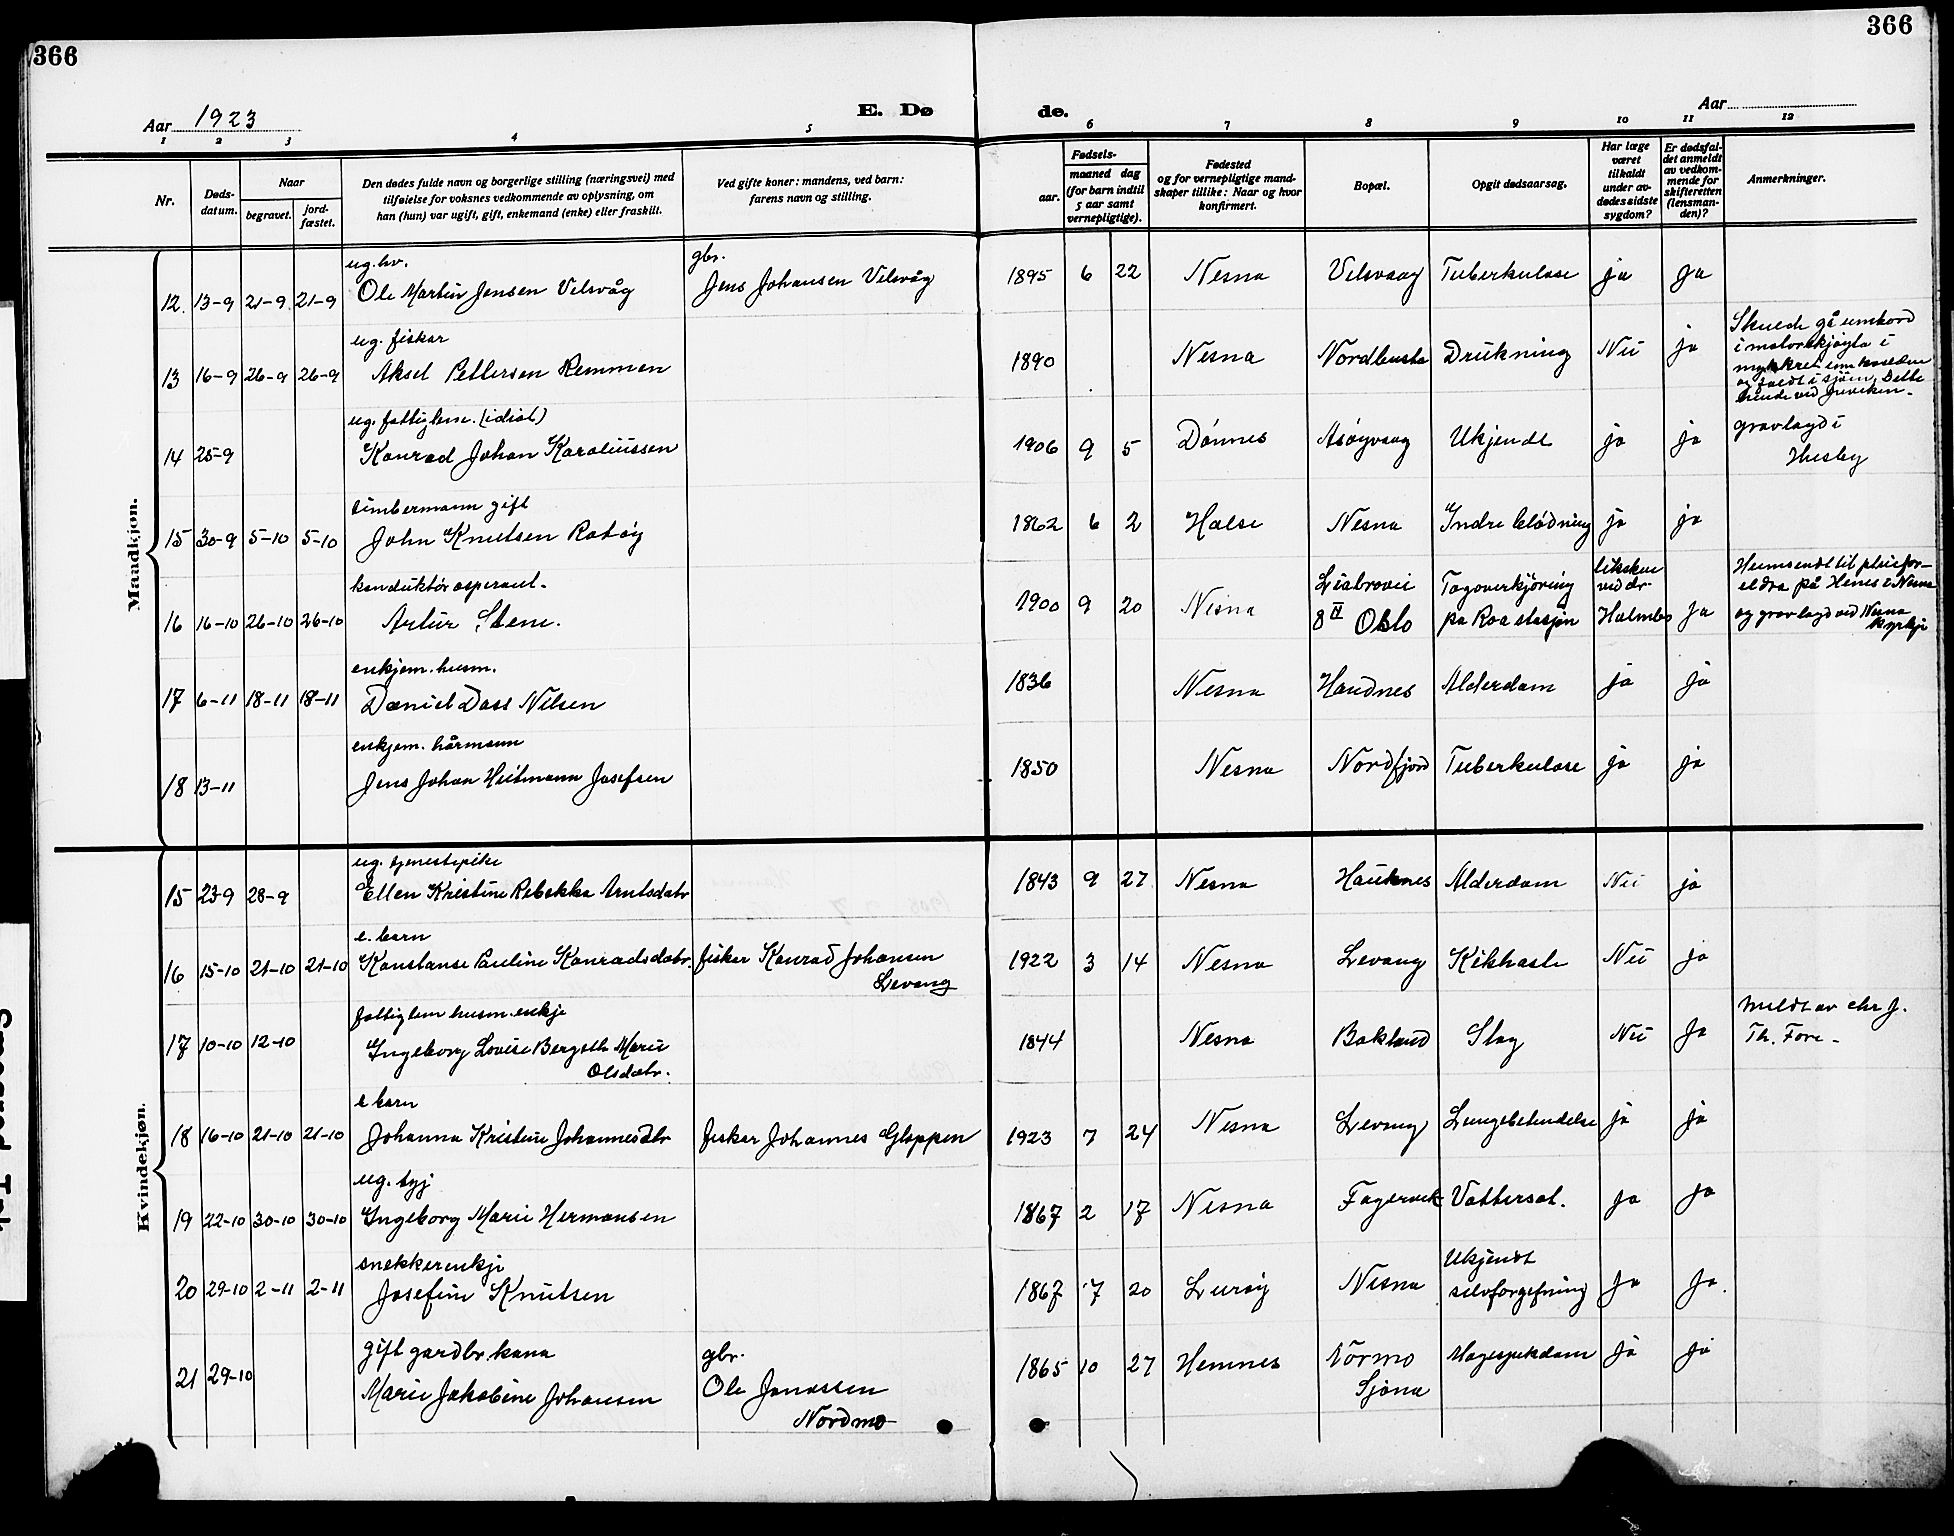 366
366
Aar 1923
E. Dø
de.
Aar
1 2 3 4 5 6 7 8 9 10 11 12
Nr.
Døds-
datum.
Naar
begravet.
jord-
fæstet.
Den dødes fulde navn og borgerlige stilling (næringsvei) med
tilføielse for voksnes vedkommende av oplysning, om
han (hun) var ugift, gift, enkemand (enke) eller fraskilt.
Ved gifte koner: mandens, ved barn:
farens navn og stilling.
Fødsels-
aar.
maaned dag
(for barn indtil
5 aar samt
vernepligtige).
Fødested
og for vernepligtige mand-
skaper tillike: Naar og hvor
konfirmert.
Bopæl.
Opgit dødsaarsag.
Har læge
været
tilkaldt
under av-
dødes sidste
sygdom?
Er dødsfal-
det anmeldt
av vedkom-
mende for
skifteretten
(lensman-
den)?
Anmerkninger.
Mandkjøn.
ug. hv.
gbr.
12. 13-9 21-9 21-9 Ole Martin Jensen Velsvåg Jens Johansen Velsvåg 1895 6 22 Nesna Velsvaag Tuberkulose ja ja
ug. fisker
13 16-9 26-9 26-9 Aksel Pettersen Remmen 1890 Nesna Drukning Nei ja
Skulde gå umbord
i motorskjøyta i
og faldt i sjøen. Dette
ug. fattiglem. (idiot)
14 25-9 Konrad Johan Karoliussen 1906 9 5 Dönnes Ukjendt ja ja
gravlagd i
Husby
timbermann gift
15 30-9 5-10 5-10 John Knutsen Rotöy 1862 6 2 Halse Nesna Indre blödning ja ja
konduktöraspirant.
16 16-10 26-10 26-10 Artur Stene. 1900 9 20 Nesna
8 IV Oslo
Togoverkjöring
på Roa stasjon
likskue
ved dr.
Holmbo ja
Heimsendt til pleiefor-
eldra på Henes i Nesna
og gravlagd ved Nesna
kyrkje
enkjem. husm.
17 6-11 18-11 18-11 Daniel Dass Nilsen 1836 Nesna Handnes Alderdom ja ja
enkjem. hårmann
18 13-11 Jens Johan Heitmann Josefsen 1850 Nesna Nordfjord Tuberkulose ja ja
Kvindekjøn.
ug. tjenestepike
15 23-9 28-9 Ellen Kristine Rebekka Arntsdatr 1843 9 27 Nesna Hauknes Alderdom Nei ja
e. barn
16 15-10 21-10 21-10 Konstanse Pauline Konradsdatr. fisker Konrad Johansen
Levang
1922 3 14 Nesna Levang Kikhoste Nei ja
fattiglem husm. enkje
17 10-10 12-10 Ingeborg Lovise Bergith Marie
Olsdatr.
1844 Nesna Bakland Slag Nei Ja
meldt av chr J.
Th. Fore -
e barn
18 16-10 21-10 21-10 Johanna Kristine Johannesdtr fisker Johannes Gloppen 1923 7 24 Nesna Levang Lungebetendelse ja ja
ug. tyj
19 22-10 30-10 30-10 Ingeborg Marie Hermansen 1867 2 17 Nesna Fagervik Vattersot. ja ja
snekkerenkje
20 29-10 2-11 2-11 Josefine Knutsen 1867 7 20 Luröy Nesna
Ukjendt
selvforgiftning
Ja Ja.
gift gardbr. kona
21 29-10 Marie Jakobine Johansen
gbr.
Ole Jonassen
Nordmo
1865 10 27 Hemnes
Normo
Sjona
Magesjukdom ja ja